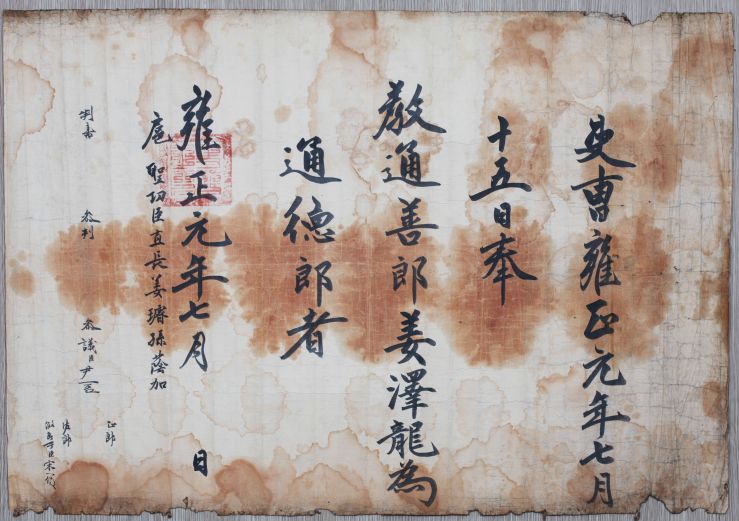 吏曺雍正元年七月
十五日奉
敎通善郎姜澤龍為
通德郎者
雍正元年七月 日
扈聖功臣直長姜璿孫蔭加
判書 參判 參議臣尹
正郎
佐郎
臣宋